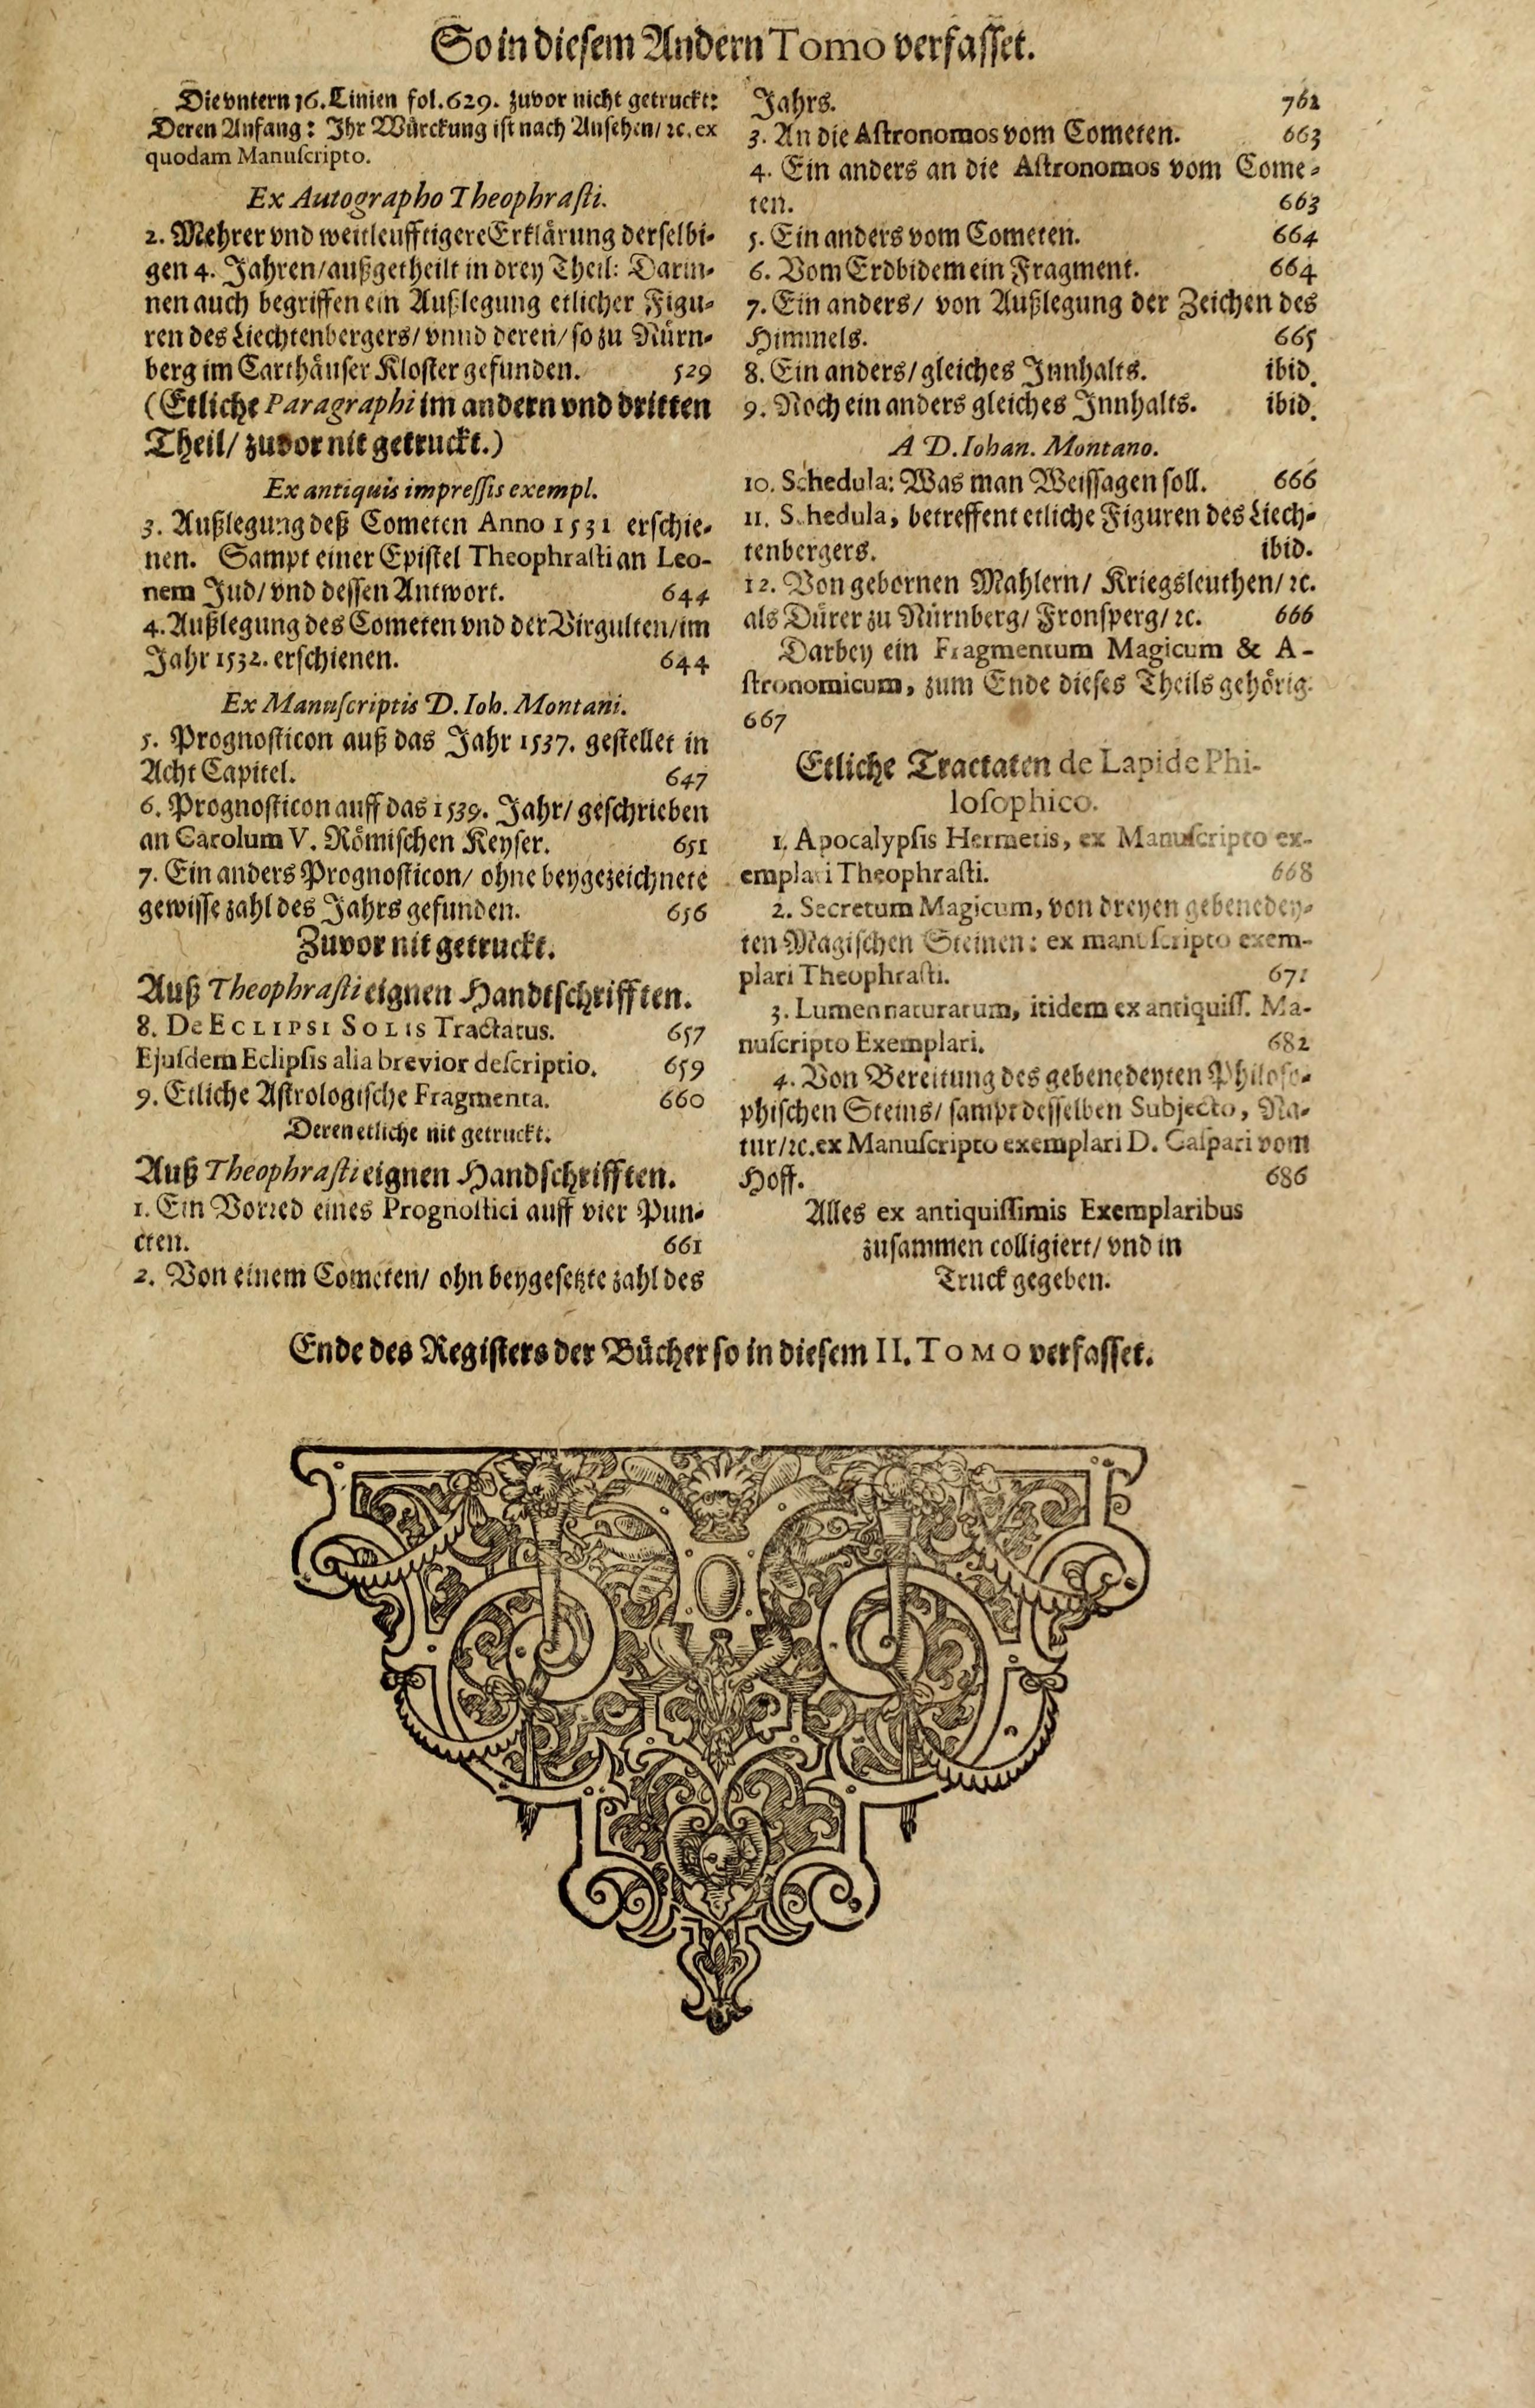 So in diesem Andern Tomo verfasset.
Die vntern 16. Linien fol. 629. zuvor nicht getruckt:
Deren Anfang: Ihr Würckung ist nach Ansehen/ ꝛc. ex
quodam Manuscripto.
Ex Autographo Theophrasti.
2. Mehrer vnd weitleufftigere Erklärung derselbi-
gen 4. Jahren/ außgetheilt in drey Theil: Darin-
nen auch begriffen ein Außlegung etlicher Figu-
ren des Liechtenbergers/ vnnd deren/ so zu Nürn-
berg im Carthäuser Kloster gefunden. 529
(Etliche Paragraphi im andern vnd dritten
Theil/ zuvor nit getruckt.)
Ex antiquis impressis exempl.
3. Außlegung deß Cometen Anno 1531 erschie-
nen. Sampt einer Epistel Theophrasti an Leo-
nem Jud/ vnd dessen Antwort. 644
4. Außlegung des Cometen vnd der Virgulten/ im
Jahr 1532. erschienen. 644
Ex Manuscriptis D. Ioh. Montani.
5. Prognosticon auß das Jahr 1537. gestellet in
Acht Capitel. 647
6. Prognosticon auff das 1539. Jahr/ geschrieben
an Carolum V. Römischen Keyser. 651
7. Ein anders Prognosticon/ ohne beygezeichnete
gewisse zahl des Jahrs gefunden. 656
Zuvor nit getruckt.
Auß Theophrasti eignen Handtschrifften.
8. De ECLIPSI SOLIS Tractatus. 657
Ejusdem Eclipsis alia brevior descriptio. 659
9. Etliche Astrologische Fragmenta. 660
Deren etliche nit getruckt.
Auß Theophrasti eignen Handschrifften.
1. Ein Vorred eines Prognostici auff vier Pun-
cten. 661
2. Von einem Cometen/ ohn beygesetzte zahl des
Jahrs. 762
3. An die Astronomos vom Cometen. 663
4. Ein anders an die Astronomos vom Come-
ten. 663
5. Ein anders vom Cometen. 664
6. Vom Erdbidem ein Fragment. 664
7. Ein anders/ von Außlegung der Zeichen des
Himmels. 665
8. Ein anders/ gleiches Innhalts. ibid.
9. Noch ein anders gleiches Innhalts. ibid.
A D. Iohan. Montano.
10. Schedula: Was man Weissagen soll. 666
11. Schedula, betreffent etliche Figuren des Liech-
tenbergers. ibid.
12. Von gebornen Mahlern/ Kriegsleuthen/ ꝛc.
als Dürer zu Nürnberg/ Fronsperg/ ꝛc. 666
Darbey ein Fragmentum Magicum & A-
stronomicum, zum Ende dieses Theils gehörig.
667
Etliche Tractaten de Lapide Phi-
losophico.
1. Apocalypsis Hermetis, ex Manuscripto ex-
emplari Theophrasti. 668
2. Secretum Magicum, von dreyen gebenedey-
ten Magischen Steinen: ex manuscripto exem-
plari Theophrasti. 671
3. Lumen naturarum, itidem ex antiquiss. Ma-
nuscripto Exemplari. 682
4. Von Bereitung des gebenedeyten Philoso-
phischen Steins/ sampt desselben Subjecto, Na-
tur/ ꝛc. ex Manuscripto exemplari D. Caspari vom
Hoff. 686
Alles ex antiquissimis Exemplaribus
zusammen colligiert/ vnd in
Truck gegeben.
Ende des Registers der Bücher so in diesem II. TOMO verfasset.